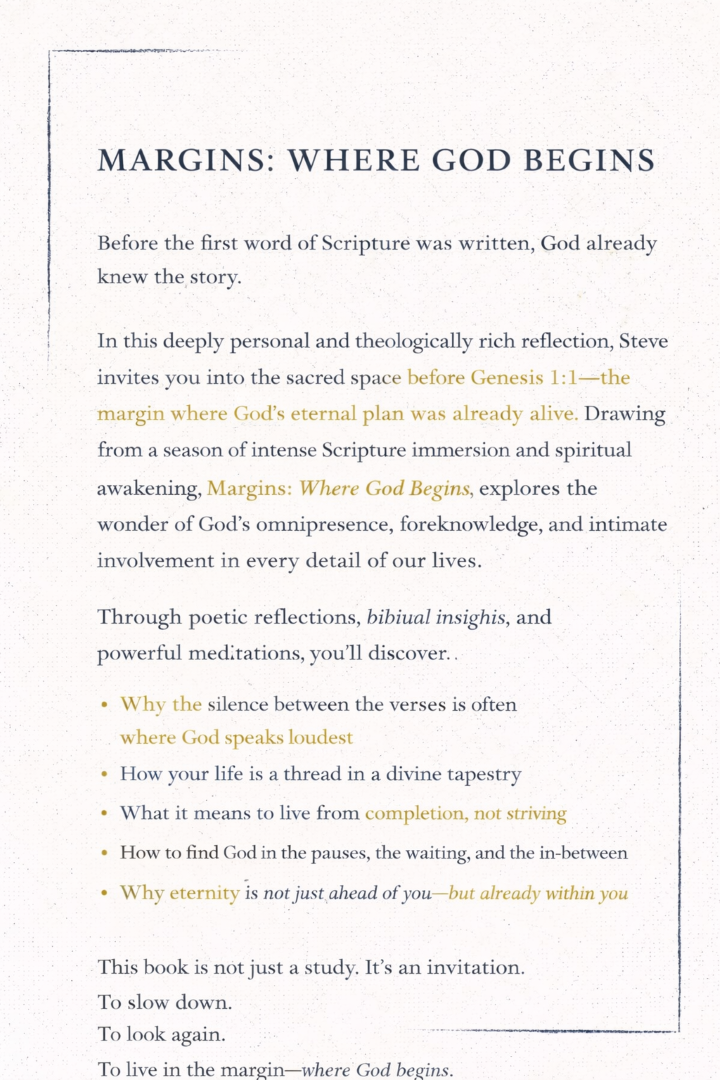 MARGINS: WHERE GOD BEGINS
Before the first word of Scripture was written, God already
knew the story.
In this deeply personal and theologically rich reflection, Steve
invites you into the sacred space before Genesis 1:1—the
margin where God's eternal plan was already alive. Drawing
from a season of intense Scripture immersion and spiritual
awakening, Margins: Where God Begins, explores the
wonder of God's omnipresence, foreknowledge, and intimate
involvement in every detail of our lives.
Through poetic reflections, bibiual insighis, and
powerful meditations, you'll discover. .
• Why the silence between the verses is often
where God speaks loudest
• How your life is a thread in a divine tapestry
• What it means to live from completion, not striving
• How to find God in the pauses, the waiting, and the in-between
• Why eternity is not just ahead of you—but already within you
This book is not just a study. It's an invitation.
To slow down.
To look again.
To live in the margin—where God begins.